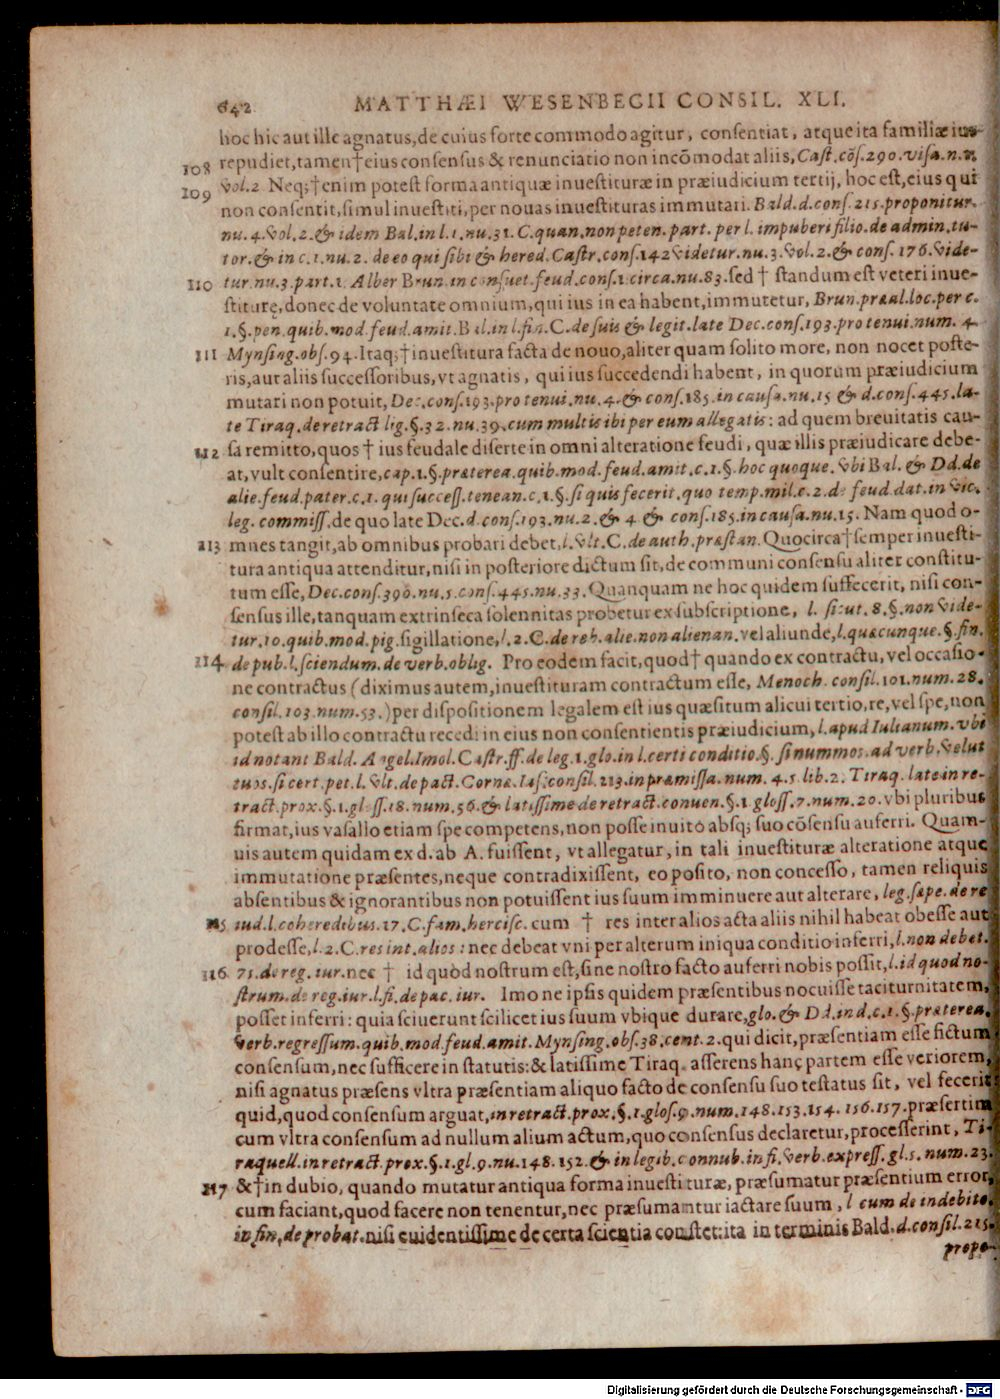 642 MATTHÆI WESENBECII CONSIL. XLI.
hoc hic aut ille agnatus, de cuius forte commodo agitur, consentiat, atque ita familiæ ius
108 repudiet, tamen † eius consensus & renunciatio non incōmodat aliis, Cast. cōs. 290. visa. n. n.
109 Vol. 2 Neq; † enim potest forma antiquæ inuestituræ in præiudicium tertij, hoc est, eius qui
non consentit, simul inuestiti, per nouas inuestituras immutari. Bald. d. cons. 215. proponitur.
nu. 4. Vol. 2. & idem Bal. in l. 1. nu. 31. C. quan. non peten. part. per l. impuberi filio. de admin. tu-
tor. & in c. 1. nu. 2. de eo qui sibi & hered. Castr. cons. 142 Videtur. nu. 3. Vol. 2. & cons. 176. Vide-
110 tur. nu. 3. part. 1. Alber Brun. in consuet. feud. cons. 1. circa. nu. 83. sed † standum est veteri inue-
stiturę, donec de voluntate omnium, qui ius in ea habent, immutetur, Brun. præal. loc. per c.
1. §. pen. quib. mod. feud. amit. Bal. in l. fin. C. de suis & legit. late Dec. cons. 193. pro tenui. num. 4.
111 Mynsing. obs. 94. Itaq; † inuestitura facta de nouo, aliter quam solito more, non nocet poste-
ris, aut aliis successoribus, vt agnatis, qui ius succedendi habent, in quorum præiudicium
mutari non potuit, Dec. cons. 193. pro tenui. nu. 4. & cons. 185. in causa. nu. 15 & d. cons. 445. la-
te Tiraq. de retract lig. §. 32. nu. 39. cum multis ibi per eum allegatis: ad quem breuitatis cau-
112 sa remitto, quos † ius feudale diserte in omni alteratione feudi, quæ illis præiudicare debe-
at, vult consentire, cap. 1. §. præterea. quib. mod. feud. amit. c. 1. §. hoc quoque. Vbi Bal. & Dd. de
alie. feud. pater. c. 1. qui success. tenean. c. 1. §. si quis fecerit. quo temp. mil. c. 2. de feud. dat. in vic.
leg. commiss. de quo late Dec. d. cons. 193. nu. 2. & 4 & cons. 185. in causa. nu. 15. Nam quod o-
113 mnes tangit, ab omnibus probari debet, l. Vlt. C. de auth. præstan. Quocirca † semper inuesti-
tura antiqua attenditur, nisi in posteriore dictum sit, de communi consensu aliter constitu-
tum esse, Dec. cons. 390. nu. 5. cons. 445. nu. 33. Quanquam ne hoc quidem suffecerit, nisi con-
sensus ille, tanquam extrinseca solennitas probetur ex subscriptione, l. sicut. 8. §. non Vide-
tur. 10. quib. mod. pig. sigillatione, l. 2. C. de reb. alie. non alienan. vel aliunde, l. quæcunque. §. fin.
114 de pub. l. sciendum. de verb. oblig. Pro eodem facit, quod † quando ex contractu, vel occasio-
ne contractus (diximus autem, inuestituram contractum esse, Menoch. consil. 101. num. 28.
consil. 103. num. 53.) per dispositionem legalem est ius quæsitum alicui tertio, re, vel spe, non
potest ab illo contractu recedi in eius non consentientis præiudicium, l. apud Iulianum. vbi
id notant Bald. Angel. Imol. Castr. ff. de leg. 1. glo. in l. certi conditio. §. si nummos. ad verb. Velut
tuos. si cert. pet. l. Vlt. de pact. Corne. Ias. consil. 213. in præmissa. num. 4. 5. lib. 2. Tiraq. late in re-
tract. prox. §. 1. gloss. 18. num. 56. & latissime de retract. conuen. §. 1 gloss. 7. num. 20. vbi pluribus
firmat, ius vasallo etiam spe competens, non posse inuito absq; suo cōsensu auferri. Quam-
uis autem quidam ex d. ab A. fuissent, vt allegatur, in tali inuestituræ alteratione atque
immutatione præsentes, neque contradixissent, eo posito, non concesso, tamen reliquis
absentibus & ignorantibus non potuissent ius suum imminuere aut alterare, leg. sæpe. de re
115 iud. l. coheredibus. 17. C. fam. hercisc. cum † res inter alios acta aliis nihil habeat obesse aut
prodesse, l. 2. C. res int. alios: nec debeat vni per alterum iniqua conditio inferri, l. non debet.
116 75. de reg. iur. nec † id quod nostrum est, sine nostro facto auferri nobis possit, l. id quod no-
strum. de reg. iur. l. fi. de pac. iur. Imo ne ipsis quidem præsentibus nocuisse taciturnitatem,
posset inferri: quia sciuerunt scilicet ius suum vbique durare, glo. & Dd. in d. c. 1. §. præterea.
Verb. regressum. quib. mod. feud. amit. Mynsing. obs. 38. cent. 2. qui dicit, præsentiam esse fictum
consensum, nec sufficere in statutis: & latissime Tiraq. asserens hanc partem esse veriorem,
nisi agnatus præsens vltra præsentiam aliquo facto de consensu suo testatus sit, vel fecerit
quid, quod consensum arguat, in retract. prox. §. 1. glos. 9. num. 148. 153. 154. 156. 157. præsertim
cum vltra consensum ad nullum alium actum, quo consensus declaretur, processerint, Ti-
raquell. in retract. prox. §. 1. gl. 9. nu. 148. 152. & in legib. connub. in fi. Verb. express. gl. 5. num. 23.
117 & † in dubio, quando mutatur antiqua forma inuestituræ, præsumatur præsentium error,
cum faciant, quod facere non tenentur, nec præsumantur iactare suum, l cum de indebito.
in fin. de probat. nisi euidentissime de certa scientia constet: ita in terminis Bald. d. consil. 215.
propo-
Digitalisierung gefördert durch die Deutsche Forschungsgemeinschaft - DFG